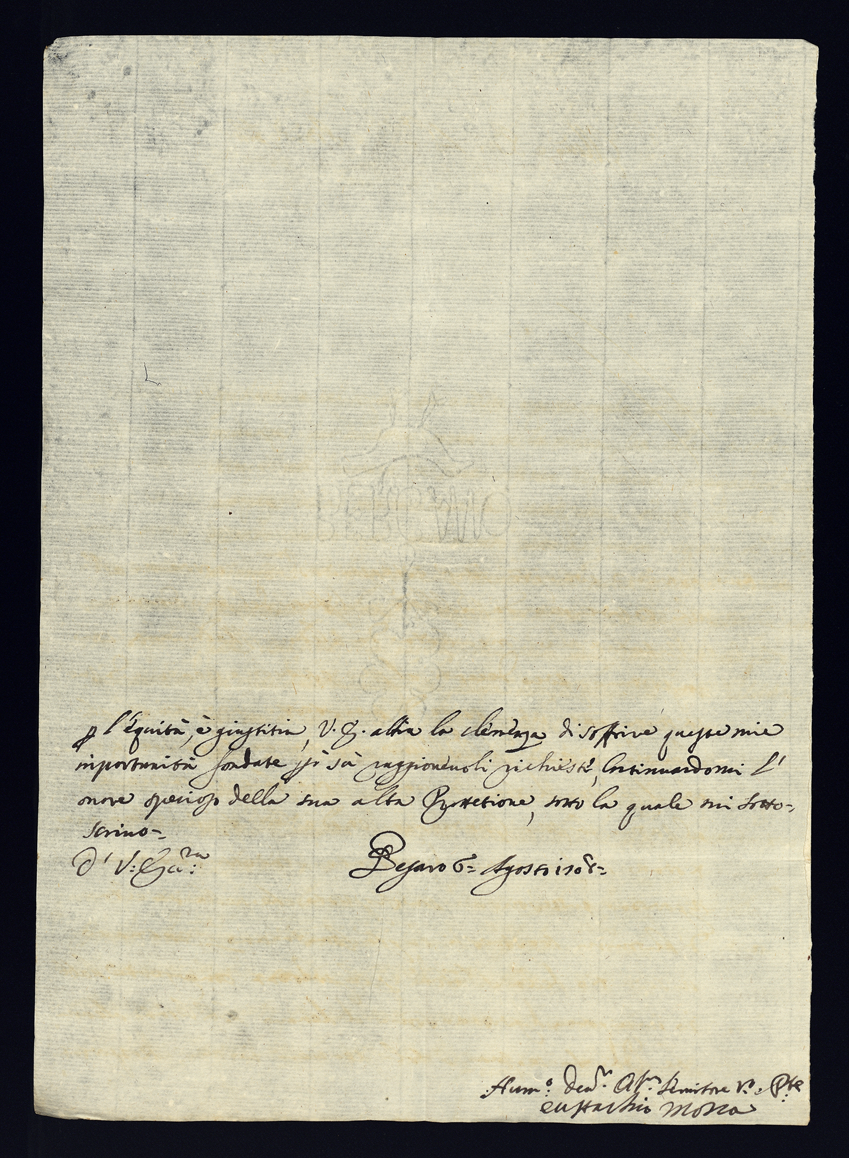 BERGAMO
l'equità, e giustitia, V. E. abbia la clemenza di soffrire queste mie
importunità fondate sù raggioneuoli richieste, continuandomi l'
onore specioso della sua alta Protettione, sotto la quale mi sotto=
scriuo=
D' V: Ecc:za
Pesaro 6= Agosto 1708=
Hum.o Deu.o Obl.o Seruitore V.o
Eustachio Mosca